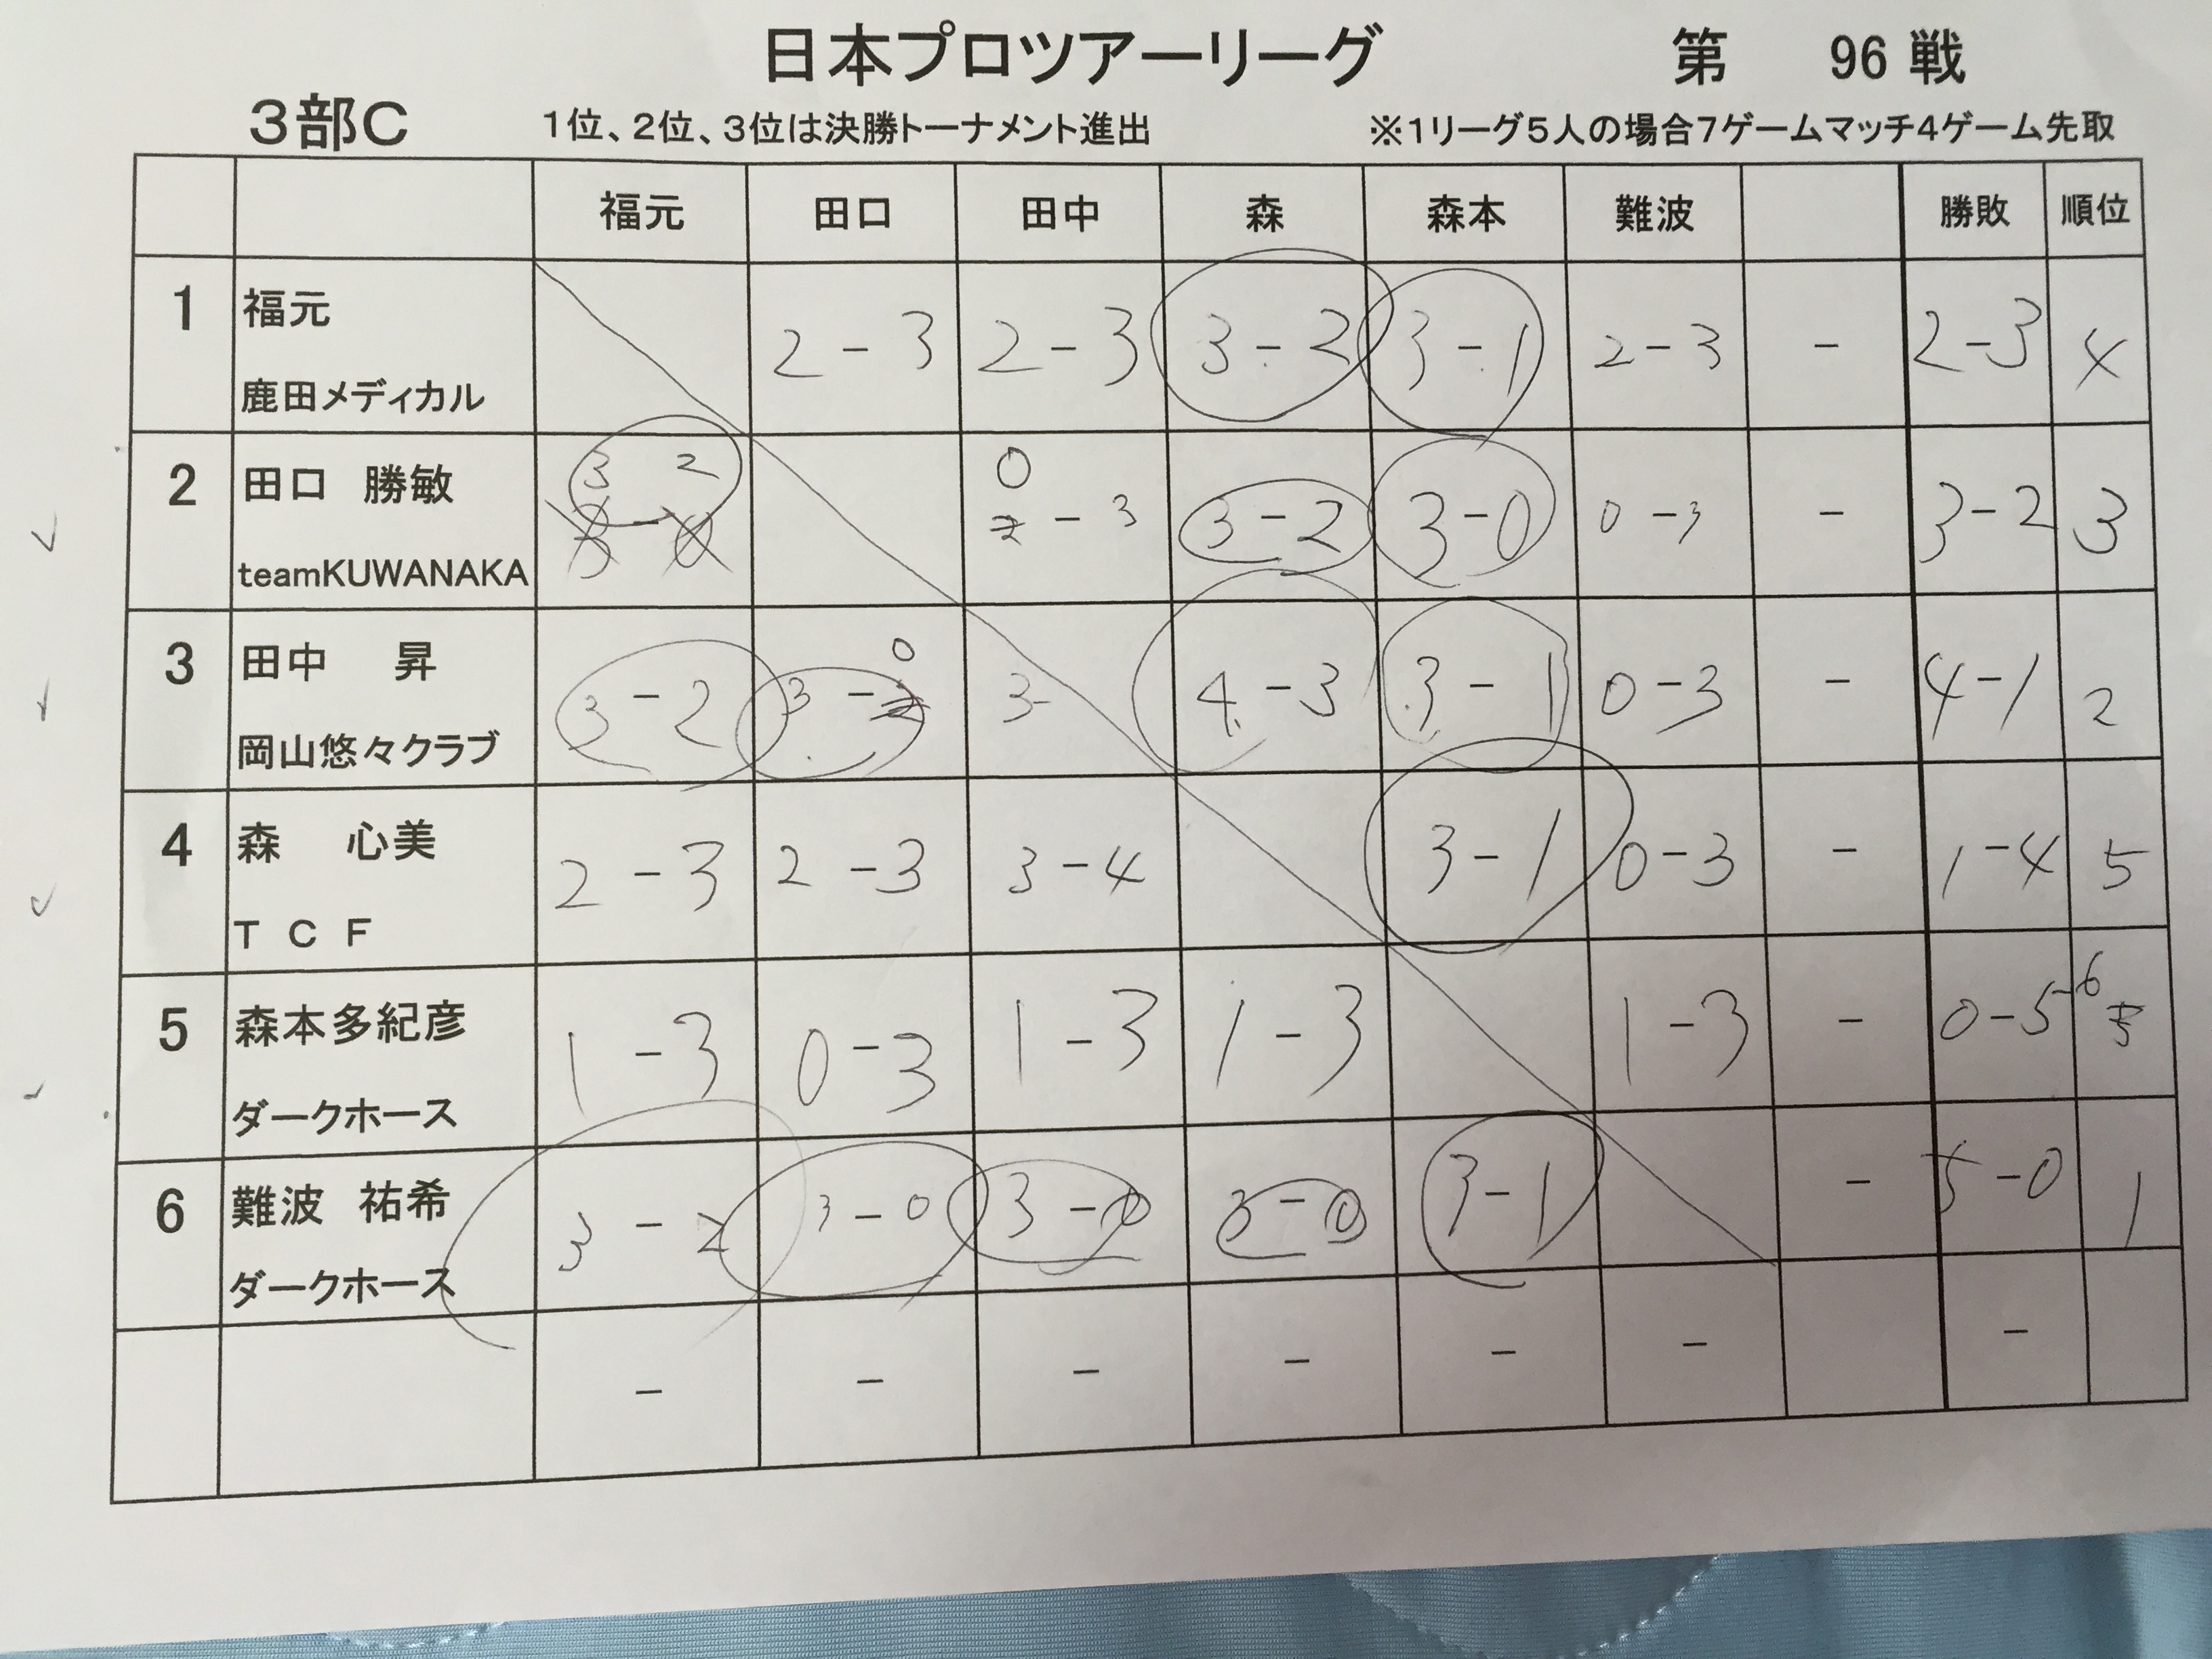 日本プロツアーリーグ 第 96 戦
3部C 1位、2位、3位は決勝トーナメント進出 ※1リーグ5人の場合7ゲームマッチ4ゲーム先取
福元 田口 田中 森 森本 難波 勝敗 順位
1 福元 2-3 2-3 3-2 3-1 2-3 - 2-3 4
鹿田メディカル
2 田口 勝敏 3 2 0 - 3 3-2 3-0 0-3 - 3-2 3
teamKUWANAKA
3 田中 昇 3-2 3-0 3- 4-3 3-1 0-3 - 4-1 2
岡山悠々クラブ
4 森 心美 2-3 2-3 3-4 3-1 0-3 - 1-4 5
TCF
5 森本多紀彦 1-3 0-3 1-3 1-3 1-3 - 0-5 6
ダークホース
6 難波 祐希 3-2 3-0 3-0 3-0 3-1 - 5-0 1
ダークホース
- - - - - - -